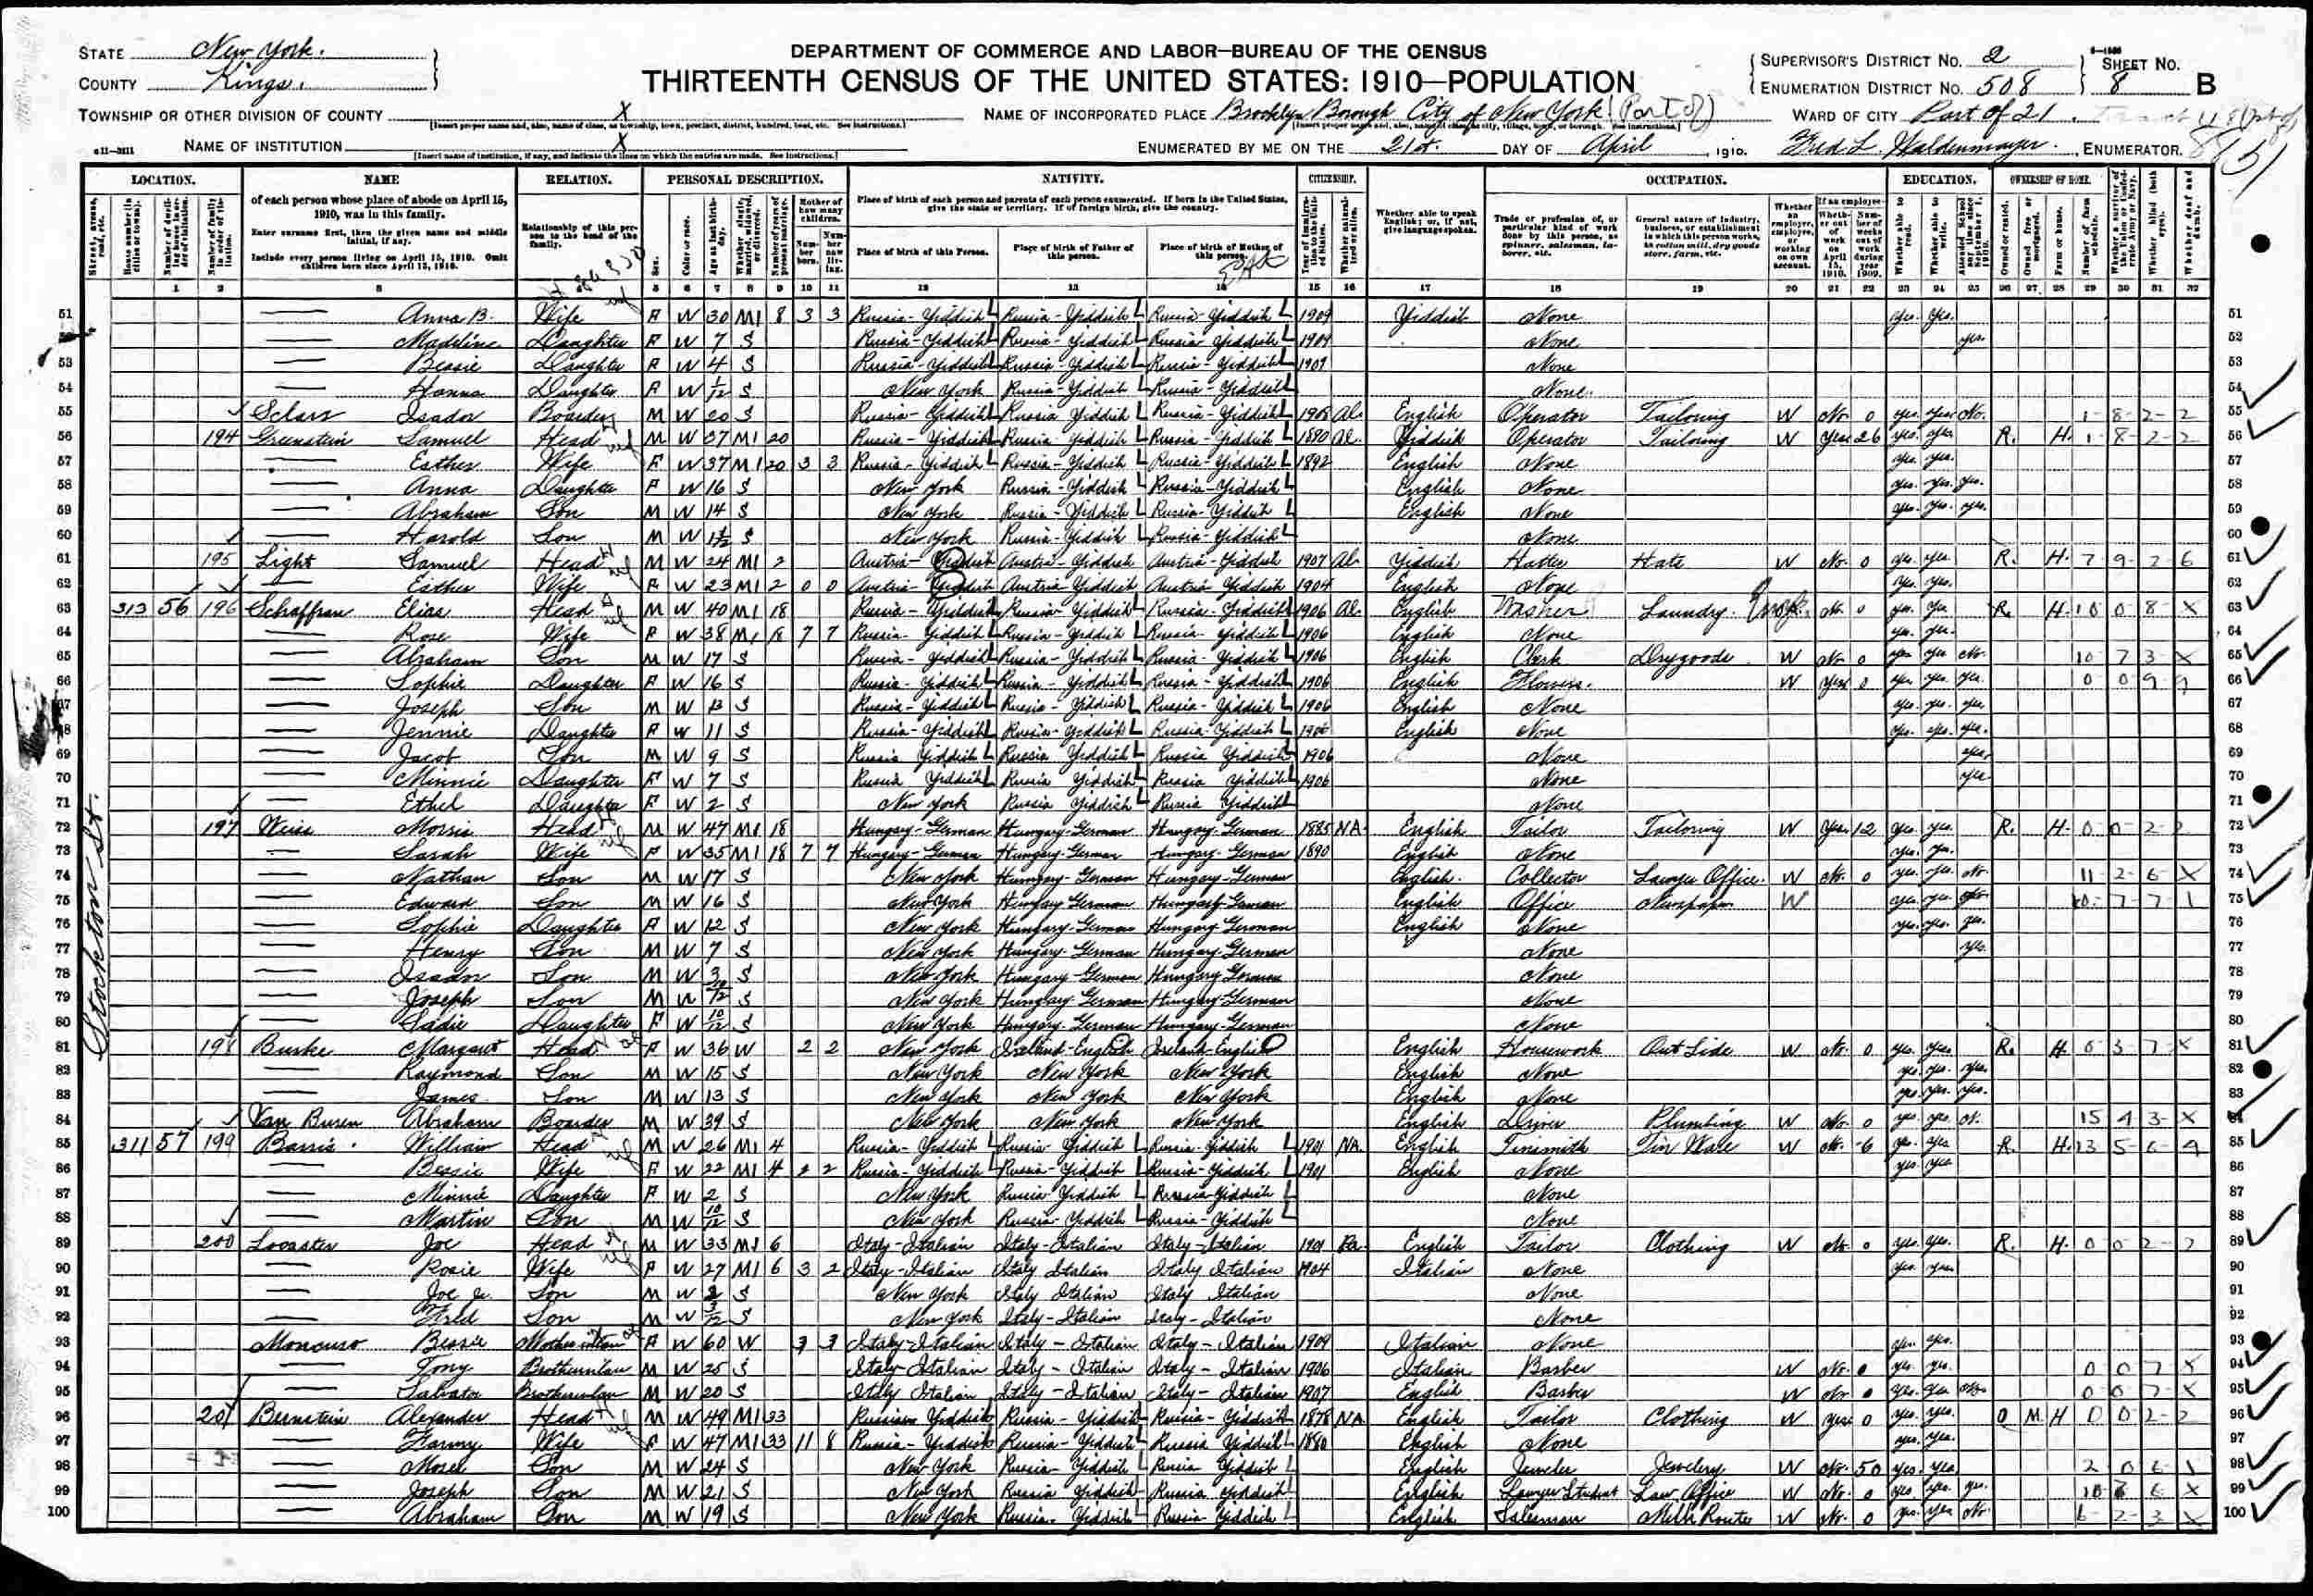 STATE New York.
COUNTY Kings.
TOWNSHIP OR OTHER DIVISION OF COUNTY X
NAME OF INSTITUTION X
DEPARTMENT OF COMMERCE AND LABOR—BUREAU OF THE CENSUS
THIRTEENTH CENSUS OF THE UNITED STATES: 1910—POPULATION
NAME OF INCORPORATED PLACE Brooklyn Borough City of New York (Part of)
ENUMERATED BY ME ON THE 21st. DAY OF April, 1910. Fred L. Waldenmayer. ENUMERATOR.
SUPERVISOR'S DISTRICT No. 2
ENUMERATION DISTRICT No. 508
SHEET No. 8 B
WARD OF CITY Part of 21.
LOCATION. NAME RELATION. PERSONAL DESCRIPTION. NATIVITY. CITIZENSHIP. OCCUPATION. EDUCATION. OWNERSHIP OF HOME.
of each person whose place of abode on April 15, 1910, was in this family.
Enter surname first, then the given name and middle initial, if any.
Include every person living on April 15, 1910. Omit children born since April 15, 1910.
Relationship of this person to the head of the family.
Place of birth of each person and parents of each person enumerated. If born in the United States, give the state or territory. If of foreign birth, give the country.
Place of birth of this Person. Place of birth of Father of this person. Place of birth of Mother of this person.
Whether able to speak English; or, if not, give language spoken.
Trade or profession of, or particular kind of work done by this person, as spinner, salesman, laborer, etc.
General nature of industry, business, or establishment in which this person works, as cotton mill, dry goods store, farm, etc.
Stockton St.
51 Anna B. Wife F W 30 M1 8 3 3 Russia-Yiddish Russia-Yiddish Russia-Yiddish 1909 Yiddish None yes. yes. 51
52 Madeline Daughter F W 7 S Russia-Yiddish Russia-Yiddish Russia Yiddish 1909 None yes. 52
53 Bessie Daughter F W 4 S Russia-Yiddish Russia-Yiddish Russia-Yiddish 1909 None 53
54 Hanna Daughter F W 1/12 S New York Russia-Yiddish Russia-Yiddish None. 54
55 Isador Boarder M W 20 S Russia-Yiddish Russia Yiddish Russia-Yiddish 1905 Al. English Operator Tailoring W No. 0 yes. yes. No. 1-8-2-2 55
56 194 Greenstein Samuel Head M W 37 M1 20 Russia-Yiddish Russia Yiddish Russia-Yiddish 1890 Al. Yiddish Operator Tailoring W Yes 26 yes. yes. R. H. 1-8-2-2 56
57 Esther Wife F W 37 M1 20 3 3 Russia-Yiddish Russia-Yiddish Russia-Yiddish 1892 English None yes. yes. 57
58 Anna Daughter F W 16 S New York Russia-Yiddish Russia-Yiddish English None yes. yes. yes. 58
59 Abraham Son M W 14 S New York Russia-Yiddish Russia-Yiddish English None yes. yes. yes. 59
60 Harold Son M W S New York Russia-Yiddish Russia-Yiddish None 60
61 195 Light Samuel Head M W 24 M1 2 Austria-Yiddish Austria-Yiddish Austria-Yiddish 1907 Al. Yiddish Hatter Hats W No. 0 yes. yes. R. H. 7-9-2-6 61
62 Esther Wife F W 23 M1 2 0 0 Austria-Yiddish Austria Yiddish Austria Yiddish 1904 English None yes. yes. 62
63 313 56 196 Schaffran Elias Head M W 40 M1 18 Russia-Yiddish Russia-Yiddish Russia-Yiddish 1906 Al. English Washer Laundry. No. 0 yes. yes R. H. 10 0 8 X 63
64 Rose Wife F W 38 M1 18 7 7 Russia-Yiddish Russia-Yiddish Russia-Yiddish 1906 English None yes. yes. 64
65 Abraham Son M W 17 S Russia-Yiddish Russia-Yiddish Russia-Yiddish 1906 English Clerk Drygoods W No 0 yes yes No. 10 7 3 X 65
66 Sophie Daughter F W 16 S Russia-Yiddish Russia-Yiddish Russia-Yiddish 1906 English Flowers. W Yes 0 yes yes yes. 0 0 9 9 66
67 Joseph Son M W 13 S Russia-Yiddish Russia-Yiddish Russia-Yiddish 1906 English None yes. yes. yes. 67
68 Jennie Daughter F W 11 S Russia-Yiddish Russia-Yiddish Russia-Yiddish 1906 English None yes. yes. yes. 68
69 Jacob Son M W 9 S Russia Yiddish Russia Yiddish Russia Yiddish 1906 None yes 69
70 Minnie Daughter F W 7 S Russia Yiddish Russia Yiddish Russia Yiddish 1906 None yes 70
71 Ethel Daughter F W 2 S New York Russia Yiddish Russia Yiddish None 71
72 197 Weiss Morris Head M W 47 M1 18 Hungary-German Hungary-German Hungary-German 1885 NA. English Tailor Tailoring W Yes. 12 yes. yes. R. H. 0-0-2-2 72
73 Sarah Wife F W 35 M1 18 7 7 Hungary-German Hungary-German Hungary-German 1890 English None yes. yes. 73
74 Nathan Son M W 17 S New York Hungary-German Hungary-German English. Collector Lawyer Office. W No. 0 yes. yes. No. 11 2-6 X 74
75 Edward Son M W 16 S New York Hungary German Hungary German English Office Newspaper W yes. yes. 7-7-1 75
76 Sophie Daughter F W 12 S New York Hungary-German Hungary German English None yes. yes. yes. 76
77 Henry Son M W 7 S New York Hungary-German Hungary-German None yes. 77
78 Isador Son M W 3 S New York Hungary-German Hungary German None 78
79 Joseph Son M W S New York Hungary German Hungary-German None 79
80 Sadie Daughter F W 10/12 S New York Hungary-German Hungary-German None 80
81 198 Burke Margaret Head F W 36 W 2 2 New York Ireland-English Ireland-English English Housework Out Side W No. 0 yes. yes R. H. 0 3-7-X 81
82 Raymond Son M W 15 S New York New York New York English None yes. yes. yes. 82
83 James Son M W 13 S New York New York New York English None yes. yes. yes. 83
84 Van Buren Abraham Boarder M W 39 S New York New York New York English Driver Plumbing W No. 0 yes. yes. N. 15 4 3-X 84
85 311 57 199 Barris. William Head M W 26 M1 4 Russia-Yiddish Russia Yiddish Russia-Yiddish 1901 NA. English Tinsmith Tin Ware W No. 6 yes. yes R. H. 13-5-6-9 85
86 Bessie Wife F W 22 M1 4 2 2 Russia-Yiddish Russia-Yiddish Russia-Yiddish 1901 English None yes. yes 86
87 Minnie Daughter F W 2 S New York Russia Yiddish Russia Yiddish None 87
88 Martin Son M W 10/12 S New York Russia-Yiddish Russia-Yiddish None 88
89 200 Locaster Joe Head M W 33 M1 6 Italy-Italian Italy-Italian Italy-Italian 1901 Pa. English Tailor Clothing W No. 0 yes. yes. R. H. 0 0 2-2 89
90 Rosie Wife F W 27 M1 6 3 2 Italy-Italian Italy Italian Italy Italian 1904 Italian None yes. yes 90
91 Joe Jr. Son M W 2 S New York Italy Italian Italy Italian None 91
92 Fred Son M W 3/12 S New York Italy-Italian Italy-Italian None 92
93 Moncuso Bessie Mother in law F W 60 W 3 3 Italy-Italian Italy-Italian Italy-Italian 1909 Italian None yes. yes. 93
94 Tony Brotherinlaw M W 25 S Italy Italian Italy-Italian Italy-Italian 1906 Italian Barber W No. 0 yes. yes. 0 0 7 X 94
95 Salvator Brotherinlaw M W 20 S Italy Italian Italy-Italian Italy-Italian 1907 English Barber W No 0 yes. yes 0 0 7-X 95
96 201 Bernstein Alexander Head M W 49 M1 33 Russian Yiddish Russia-Yiddish Russia-Yiddish 1878 NA English Tailor Clothing W Yes 0 yes. yes. O M H 0 0 2-2 96
97 Fanny Wife F W 47 M1 33 11 8 Russia-Yiddish Russia-Yiddish Russia Yiddish 1880 English None yes. yes. 97
98 Moses Son M W 24 S New York Russia-Yiddish Russia Yiddish English Jeweler Jewelery W No. 50 yes. yes 2 0 6 1 98
99 Joseph Son M W 21 S New York Russia Yiddish Russia Yiddish English Lawyer Student Law Office W No. 0 yes yes. yes. 6 X 99
100 Abraham Son M W 19 S New York Russia-Yiddish Russia-Yiddish English Salesman Milk Route W No. 0 yes. yes No. 6-2-3 X 100